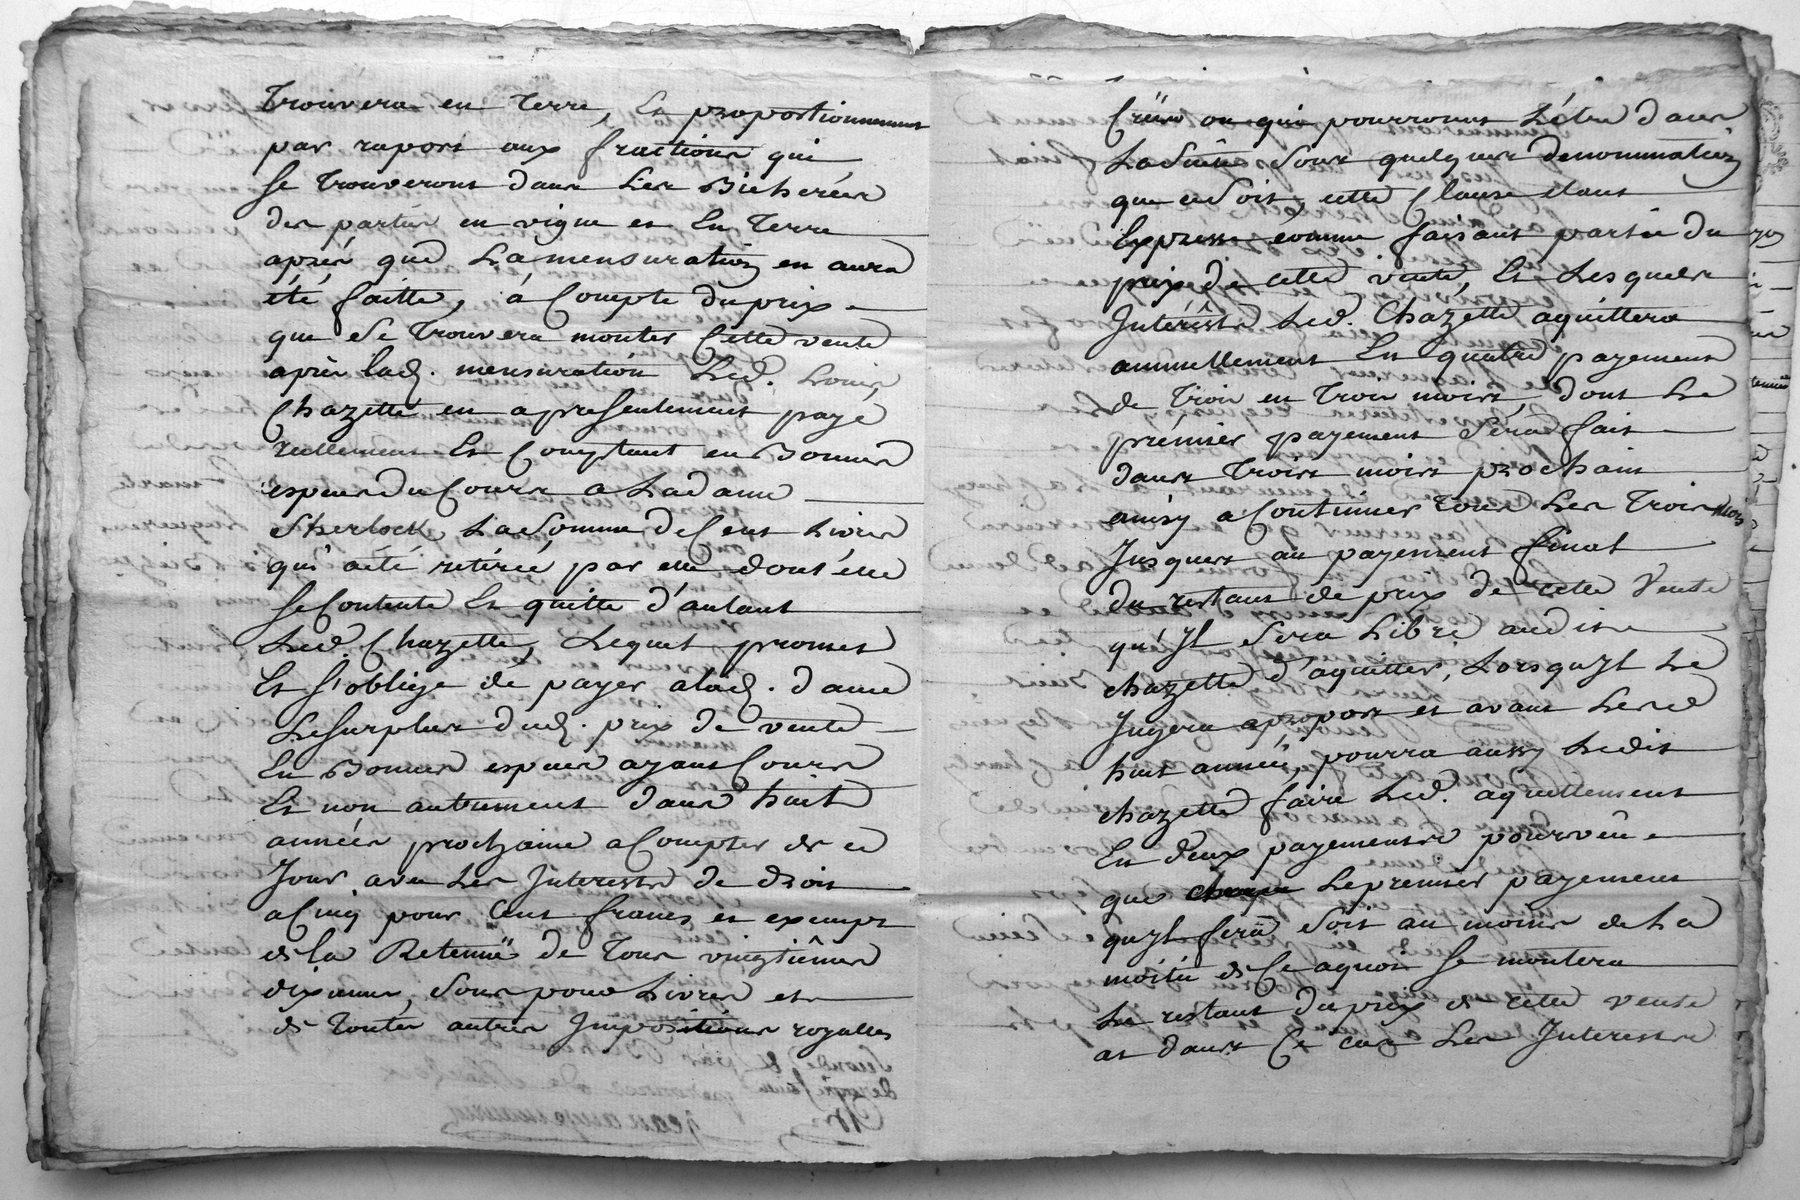 Trouvera en Terre, Et proportionnement
par raport aux fractions qui
se Trouveront dans Les Bicherées
des parties en vigne et En Terre
aprés que La mensuration en aura
été faitte, á Compte du prix
que se Trouvera monter Cette vente
aprés lad. mensuration Led. Louis
Chazette en a presentement payé
réellement Et Comptant en Bonnes
especes du Cours a La dame
Sherlock, La Somme de Cent Livres
qui a été retirée par elle dont éle
se Contente Et quitte d'autant
Led. Chazette, Lequel promet
Et s'oblige de payer a lad. dame
Le surplus dud. prix de vente
En Bonnes especes ayant Cours
Et non autrement dans huit
années prochaine a Compter de ce
Jour avec Les Interests de droit
a Cinq pour Cent francs et exempt
de la Retenuë de Tous vingtiêmes
dixieme, Sous pour Livres et
de Toutes autres Impositions royalles
Créés ou qui pourront L'étre dans
La Suite Sous quelques denomination
que ce Soit, cette Clause étant
Expresse comme faisant partie du
prix de cette vente, Et Lesquels
Intérêsts Led. Chazette aquittera
annuellement En quatre payement
de Trois en Trois mois, dont Le
prémier payement Sera fait
dans Trois mois prochain
ainsy a Continuer Tous Les Trois Mois
Jusques au payement final
du restant de prix de cette Vente
qu'Jl Sera Libre audit
chazette d'aquitter, Lorsqu'Jl Le
Jugera apropos et avant Lesd
huit année, pourra aussy Ledit
chazette faire Led. aquittement
En deux payements pourvû
que Le premier payement
qu'Jl fera Soit au moins de La
moitié de Ce aquoi se montera
Le restant du prix de cette vente
et dans Ce cas Les Interests